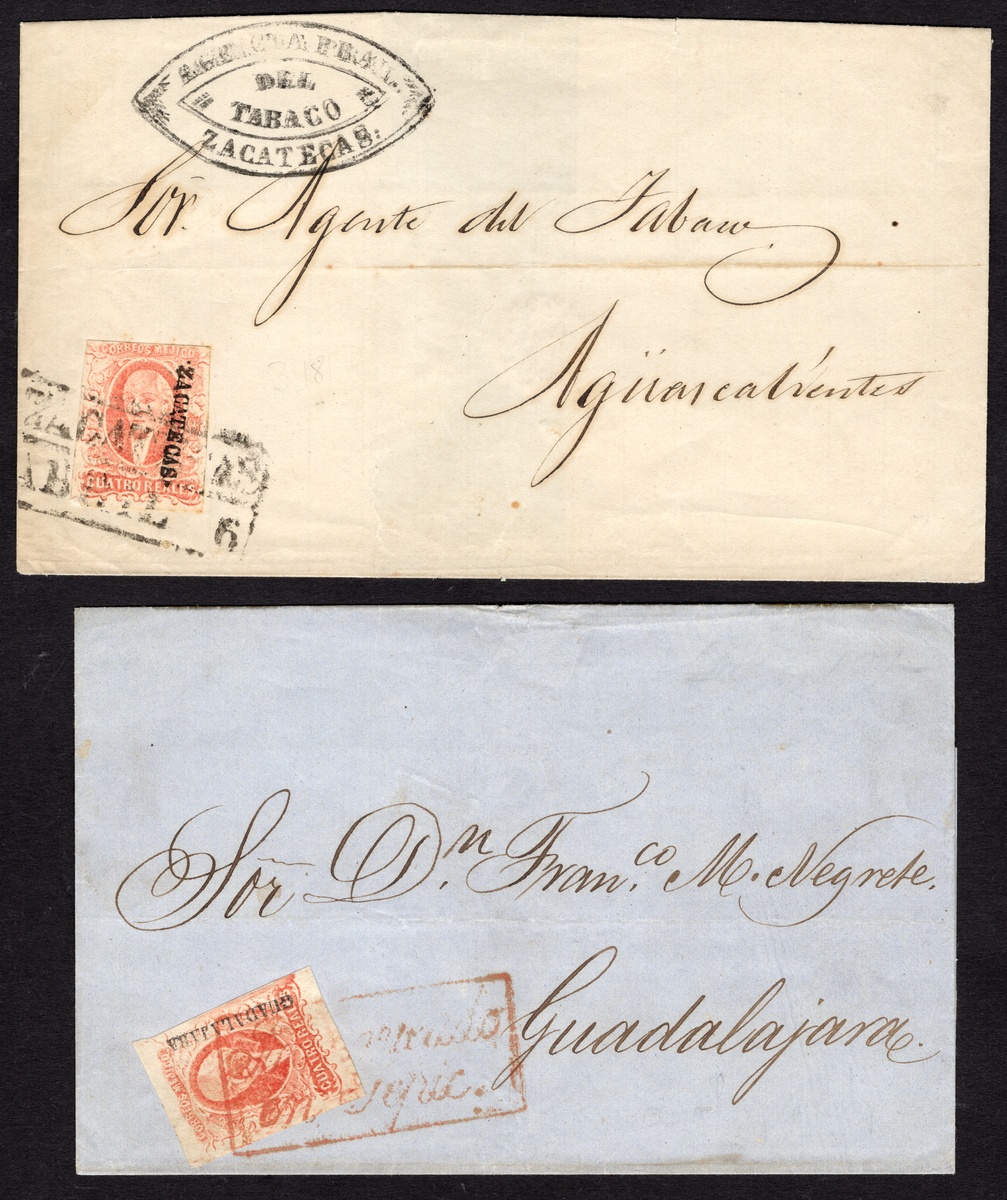 AGENCIA PRAL.
DEL
TABACO
ZACATECAS:
Sor. Agente del Tabaco.
Agüascalientes
CORREOS MEJICO
·ZACATECAS·
CUATRO REALES
ABRIL
6
Sor Dn. Franco. M. Negrete.
Guadalajara.
GUADALAJARA
CORREOS MEJICO
CUATRO REALES
Tepic.